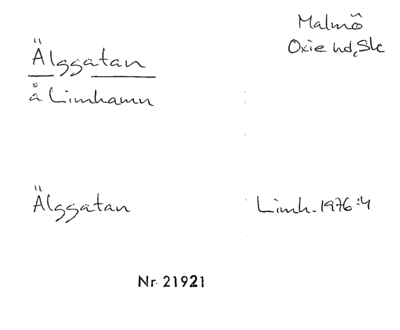 Malmö
Oxie hd, Sk
Älggatan
å Limhamn
Älggatan
Limh. 1976:4
Nr 21921